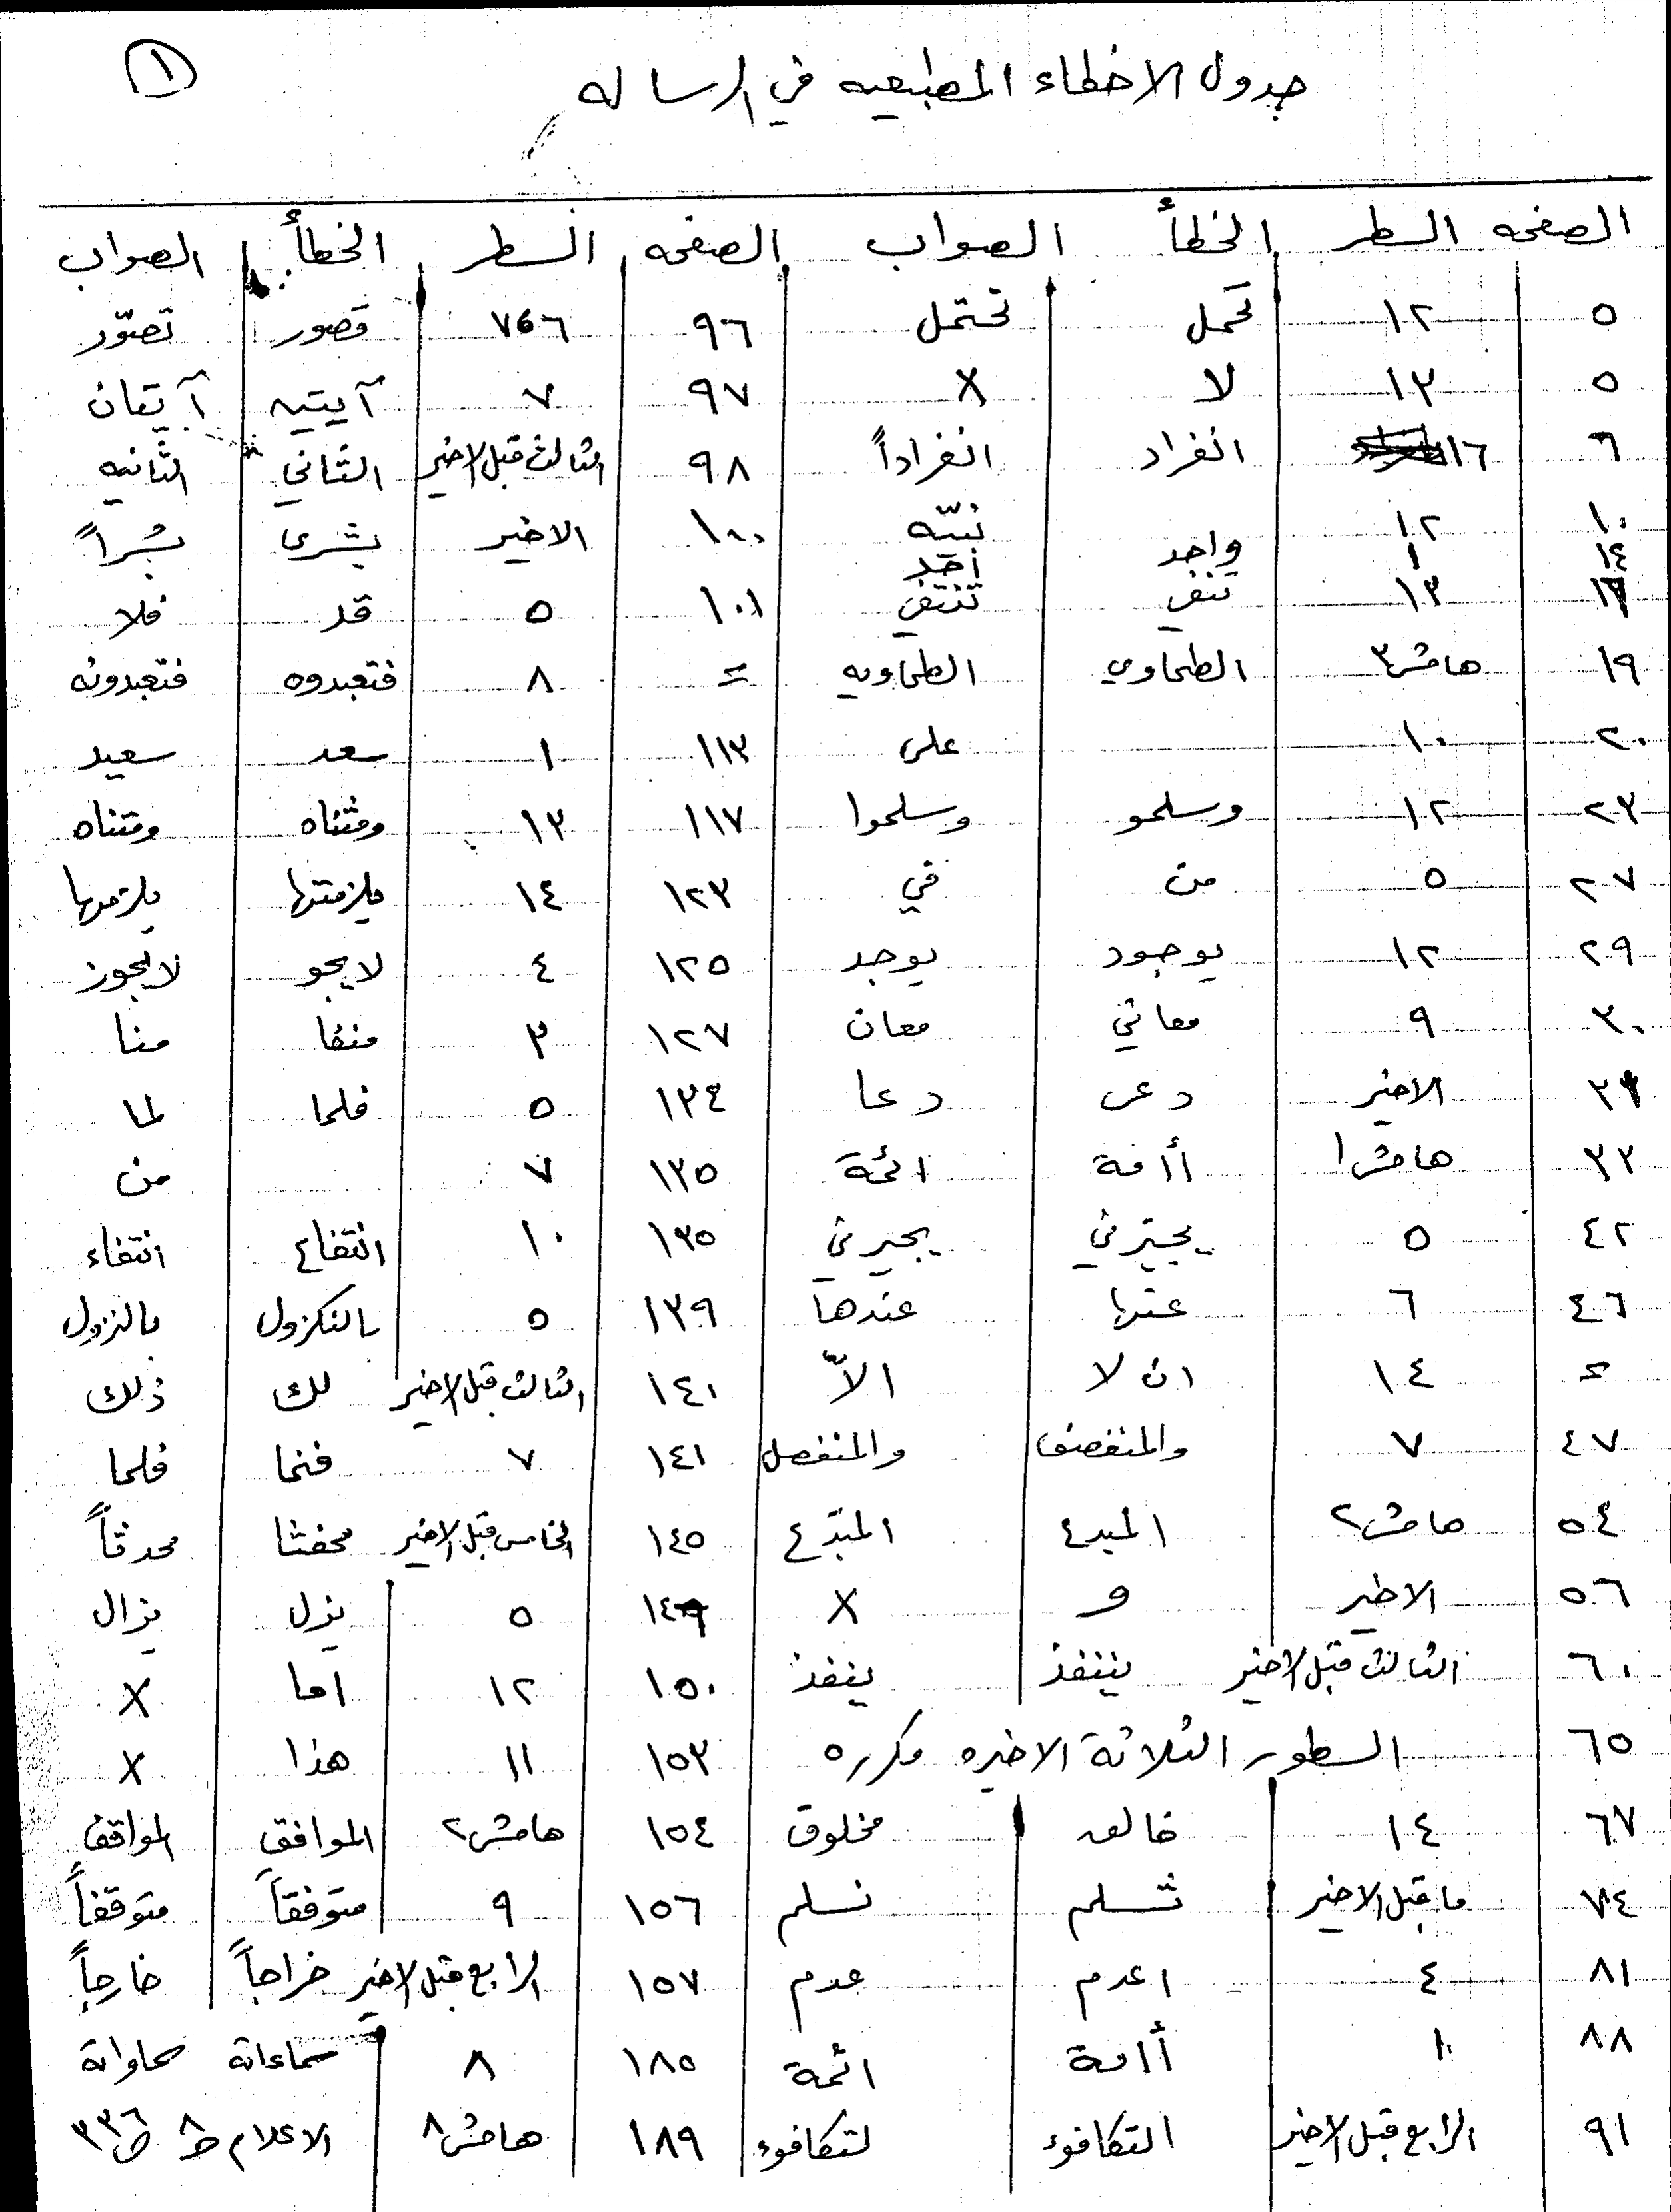 ١
جدول الاخطاء المطبعيه في الرساله
الصفحه السطر الخطأ الصواب الصفحه السطر الخطأ الصواب
٥ ١٢ تحمل تحتمل ٩٦ ٧،٦ قصور تصوّر
٥ ١٣ لا X ٩٧ ٧ آيتيه آيتان
٦ ١٦ انفراد انفراداً ٩٨ الثالث قبل الاخير الثاني الثانيه
١٠ ١٢ نبيّه ١٠٠ الاخير بشرى بشراً
١٤ ١ واحد أحد
١٦ ١٣ تنفي تنتفي ١٠١ ٥ قد فلا
١٩ هامش٣ الطحاوي الطحاويه = ٨ فتعبدوه فتعبدونه
٢٠ ١٠ على ١١٣ ١ سعد سعيد
٢٣ ١٢ وسلمو وسلموا ١١٧ ١٣ ومثناه ومتناه
٢٧ ٥ من في ١٢٣ ١٤ يلزمتها يلزمها
٢٩ ١٢ يوجود يوجد ١٢٥ ٤ لايجو لايجوز
٣٠ ٩ معاني معان ١٢٧ ٣ منفا منا
٣١ الاخير دعى دعا ١٣٤ ٥ فلما لما
٣٢ هامش١ أامة ائمة ١٣٥ ٧ من
٤٢ ٥ يجيّرني يجيرني ١٣٥ ١٠ انتفاع انتفاء
٤٦ ٦ عنها عندها ١٣٩ ٥ بالنكزول بالنزول
= ١٤ ان لا الاّ ١٤٠ الثالث قبل الاخير لك ذلك
٤٧ ٧ والمنفصف والمنفصل ١٤١ ٧ فنما فلما
٥٤ هامش٢ المبدع المبتدع ١٤٥ الخامس قبل الاخير محفثا محدثاً
٥٦ الاخير و X ١٤٩ ٥ يزل يزال
٦٠ الثالث قبل الاخير يننفذ ينفذ ١٥٠ ١٢ اما X
٦٥ السطور الثلاثة الاخيره مكرره ١٥٣ ١١ هذا X
٦٧ ١٤ خالق مخلوق ١٥٤ هامش٢ الموافق المواقف
٧٤ ما قبل الاخير تسلم نسلم ١٥٦ ٩ متوفقاً متوقفاً
٨١ ٤ اعدم عدم ١٥٧ الرابع قبل الاخير خراجاً خارجاً
٨٨ ١ أامة ائمة ١٨٥ ٨
٩١ الرابع قبل الاخير التكافوء لتكافوء ١٨٩ هامش٨ الاعلام ح٨ ص٣٣٦